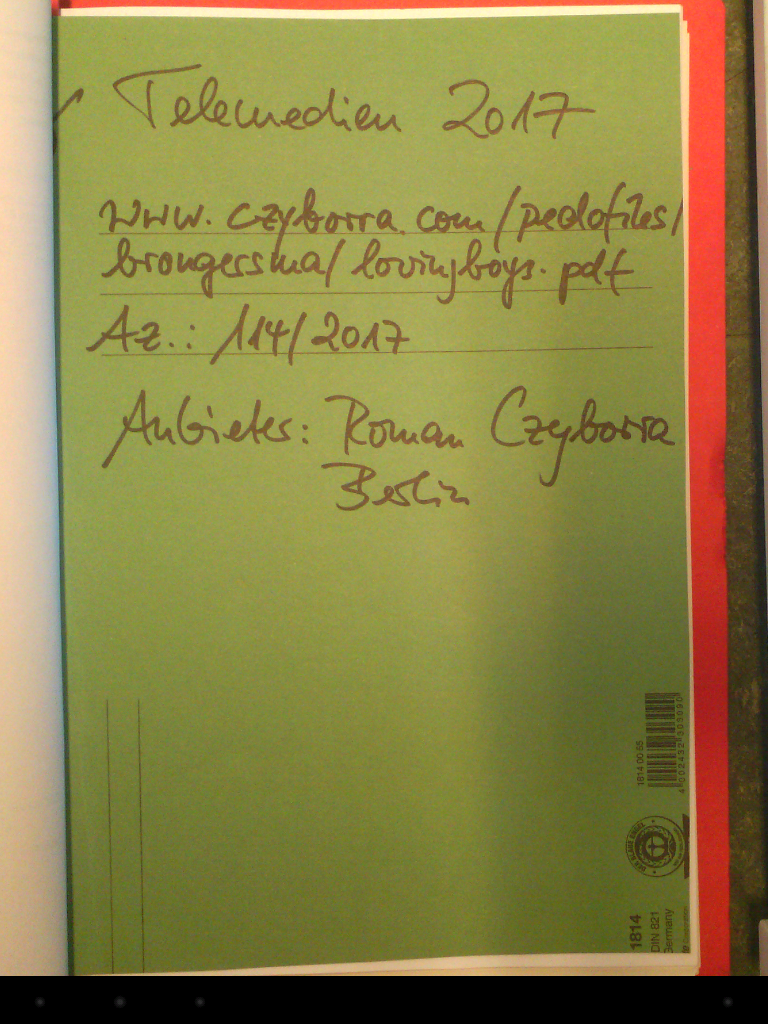 Telemedien 2017
www.czyborra.com/pedofiles/
brongersma/lovingboys.pdf
Az.: 114/2017
Anbieter: Roman Czyborra
Berlin
1814 00 65
1814
DIN 821
Germany